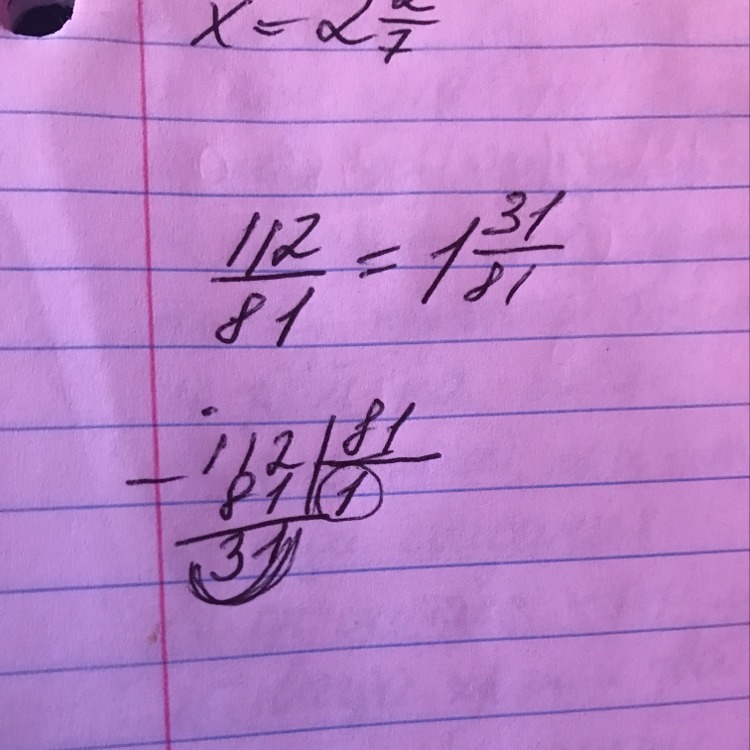 x = 2 2/7
112/81 = 1 31/81
112 | 81
- 81 | 1
31